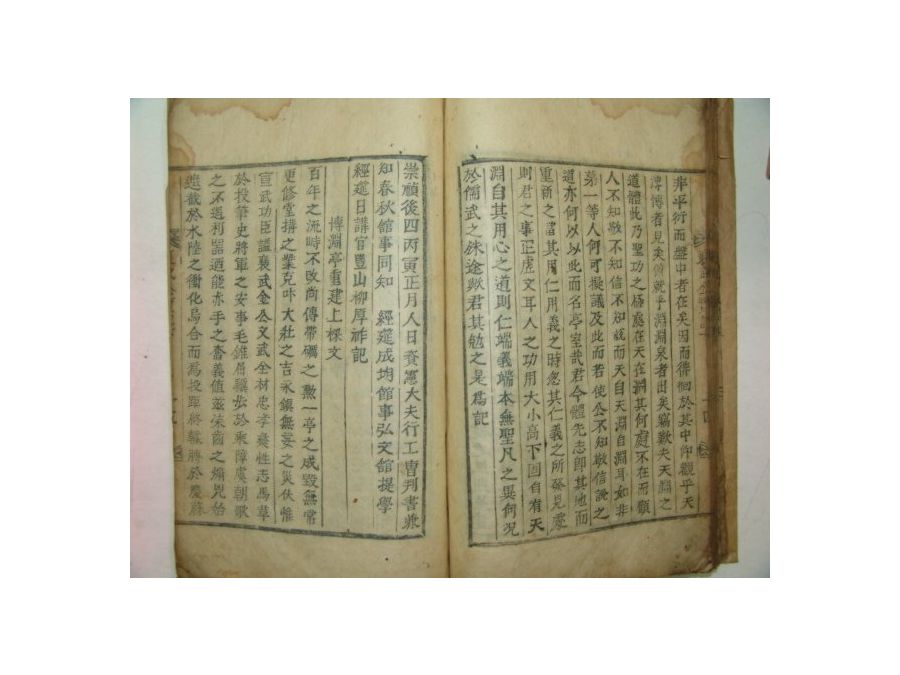 非平衍而盤中者在矣因而徘徊於其中仰觀乎天
淵傳者見矣俯就乎淵淵泉者出矣竊歎夫天淵之
道體此乃聖功之極處在天在淵其何處不在而顧
人不知敬不知信不知說而天自天淵自淵耳如非
第一等人何可擬議及此而若使公不知敬信說之
道亦何以以此而名亭室哉君今體先志卽其地而
重新之當其用仁用義之時念其仁義之所發見處
則君之事正虛文耳人之功用大小高下固自有天
淵自其用心之道則仁端義端本無聖凡之異何況
於儒武之殊途歟君其勉之是爲記
崇禎後四丙寅正月人日資憲大夫行工曹判書兼
知春秋館事同知 經筵成均館事弘文館提學
經筵日講官豐山柳厚祚記
博淵亭重建上樑文
百年之流峙不改尚傳帶礪之勳一亭之成毀無常
更修堂搆之業克叶大壯之吉永鎭無妄之災伏惟
宣武功臣諡襄武金公文武全材忠孝襄性志馬革
於投筆史將軍之安事毛錐屈驥
之不遇利器迺能赤手之奮義値
遮截於水陸之衝化烏合而爲投距將